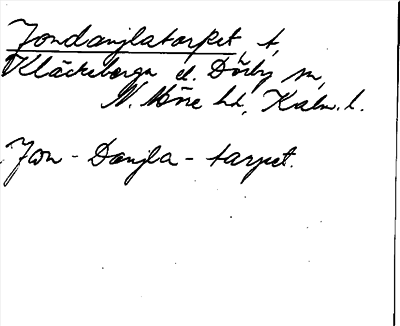 Jondanjlatorpet, t,
Kläckeberga el. Dörby sn,
N. Möre hd, Kalm. l.
Jon - Danjla - tarpet.